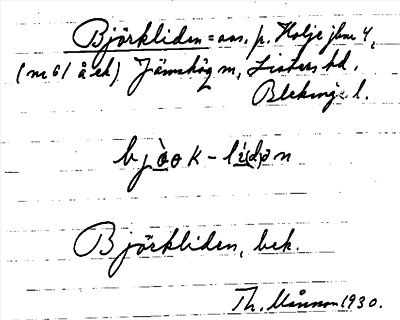 Björkliden = ans. p. Holje jbm 4,
(m 6/ å ek) Jämshög m, Listers hd.
Blekinge l.
bjòok-li(d)ən
Björkliden, bek.
Th. Månsson 1930.